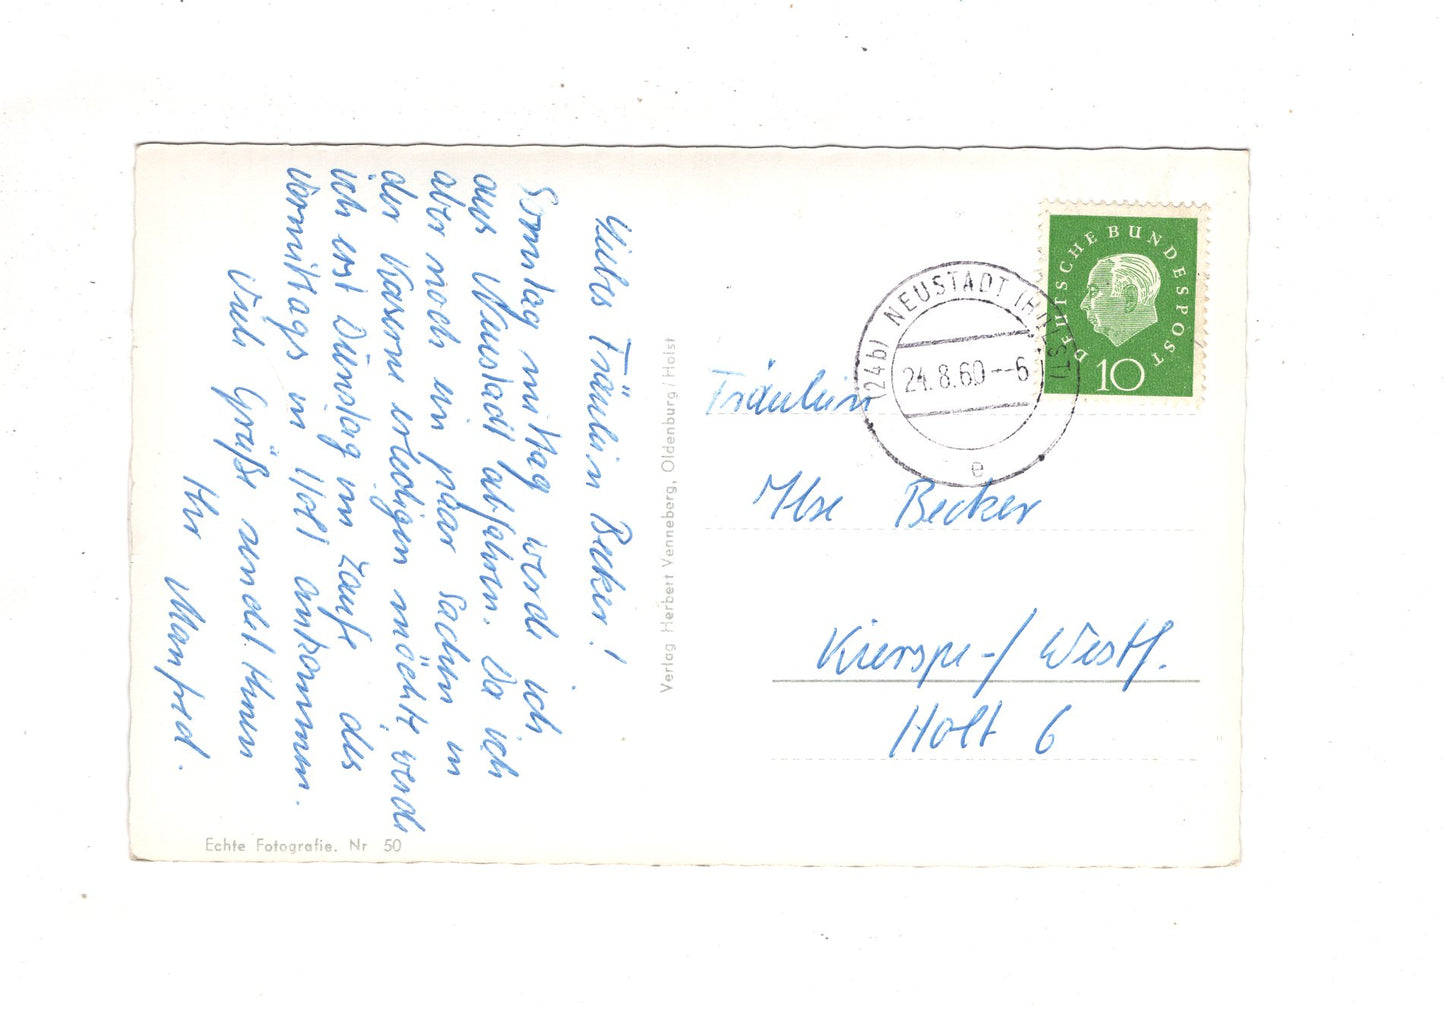 Liebes Fräulein Becker!
Sonntag mittag werde ich
aus Neustadt abfahren. Da ich
aber noch ein paar Sachen in
der Kaserne erledigen möchte, werde
ich erst Dienstag im Laufe des
Vormittags in Holt ankommen.
Viele Grüße sendet Ihnen
Ihr Manfred.
Echte Fotografie. Nr 50
Verlag Herbert Venneberg, Oldenburg/Holst
DEUTSCHE BUNDESPOST
10
(24b) NEUSTADT (HOLST)
24.8.60--6
e
Fräulein
Ilse Becker
Kierspe-/Westf.
Holt 6